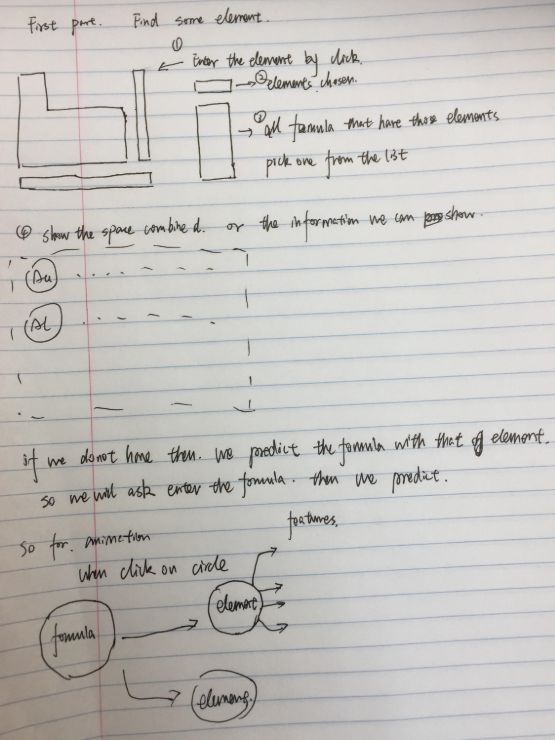 First part. Find some element.
①
Enter the element by click.
② elements chosen.
③ all formula that have those elements
pick one from the list
④ show the space combined. or the information we can show.
Au
Al
if we donot have then. we predict the formula with that of element.
so we will ask enter the formula. then we predict.
features.
So for. animation
when click on circle
element
formula
element.